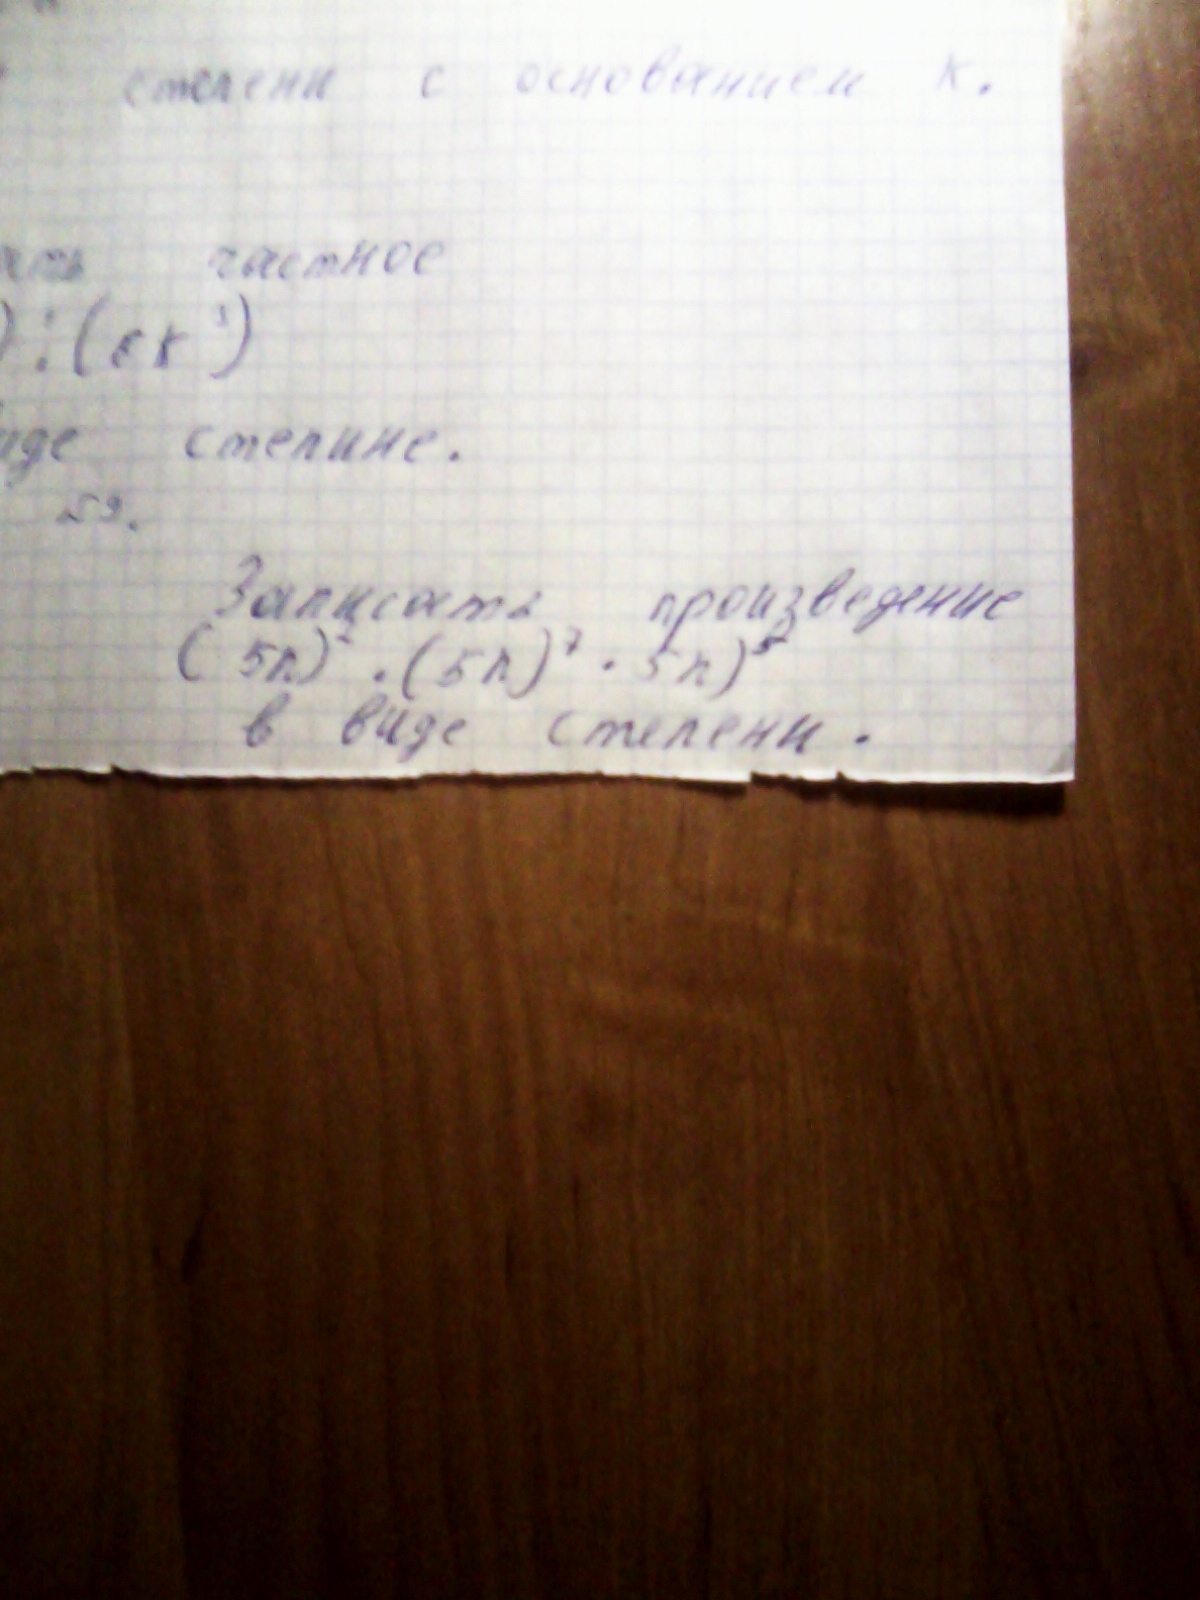 степени с основанием к.
ать частное
) : (кк³)
иде степине.
59.
Записать произведение
(5n)² · (5n)⁷ · 5n)⁵
в виде степени.